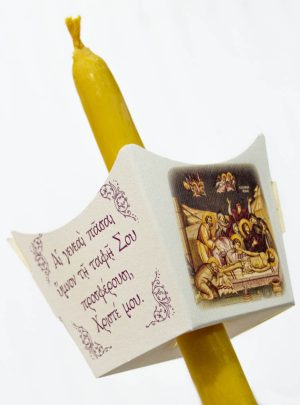 Αἱ γενεαὶ πᾶσαι
ὕμνον τῇ ταφῇ Σου
προσφέρουσι,
Χριστέ μου.